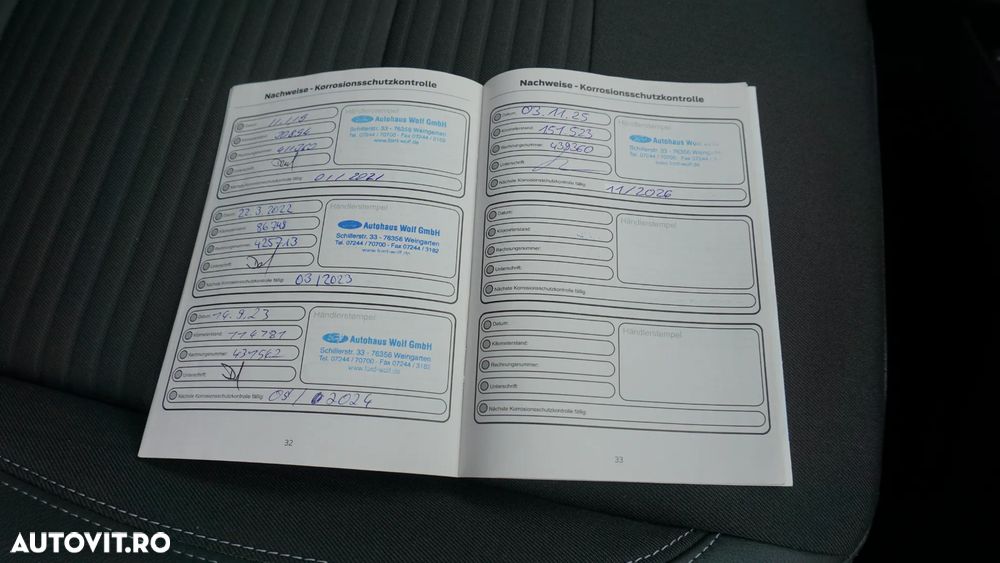 Nachweise - Korrosionsschutzkontrolle
Händlerstempel
Autohaus Wolf GmbH
Schillerstr. 33 - 76356 Weingarten
Tel. 07244 / 70700 - Fax 07244 / 3182
www.ford-wolf.de
Nächste Korrosionsschutzkontrolle fällig:
01/2021
Datum: 22.3.2022
Kilometerstand: 86748
Rechnungsnummer: 425713
Unterschrift:
Händlerstempel
Autohaus Wolf GmbH
Schillerstr. 33 - 76356 Weingarten
Tel. 07244 / 70700 - Fax 07244 / 3182
www.ford-wolf.de
Nächste Korrosionsschutzkontrolle fällig: 03/2023
Datum: 14.9.23
Kilometerstand: 114781
Rechnungsnummer: 431562
Unterschrift:
Händlerstempel
Autohaus Wolf GmbH
Schillerstr. 33 - 76356 Weingarten
Tel. 07244 / 70700 - Fax 07244 / 3182
www.ford-wolf.de
Nächste Korrosionsschutzkontrolle fällig: 09/2024
32
Nachweise - Korrosionsschutzkontrolle
Datum: 03.11.25
Kilometerstand: 151.523
Rechnungsnummer: 439360
Unterschrift:
Händlerstempel
Autohaus Wolf
Schillerstr. 33 - 76356 Weingarten
Tel. 07244 / 70700 - Fax 07244 /
www.ford-wolf.de
Nächste Korrosionsschutzkontrolle fällig:
11/2026
Datum:
Kilometerstand:
Rechnungsnummer:
Unterschrift:
Händlerstempel
Nächste Korrosionsschutzkontrolle fällig:
Datum:
Kilometerstand:
Rechnungsnummer:
Unterschrift:
Händlerstempel
Nächste Korrosionsschutzkontrolle fällig:
33
AUTOVIT.RO